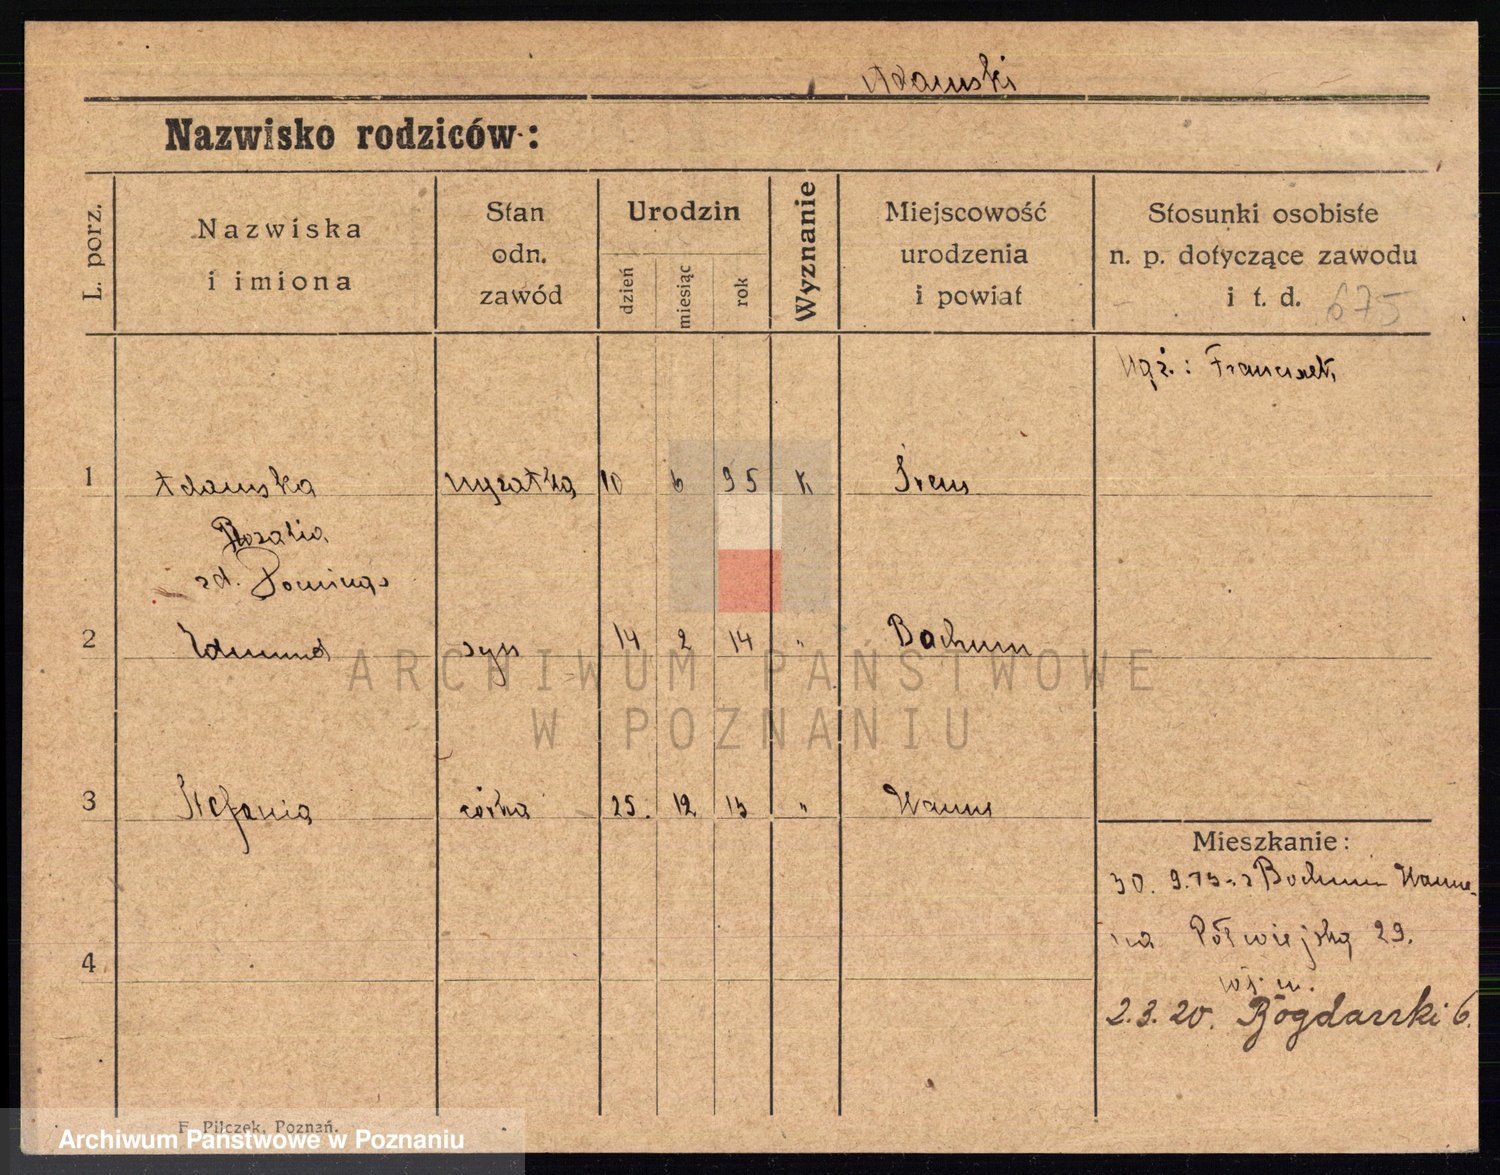 Adamski
Nazwisko rodziców:
L. porz.
Nazwiska
i imiona
Stan
odn.
zawód
Urodzin
dzień
miesiąc
rok
Wyznanie
Miejscowość
urodzenia
i powiat
Stosunki osobiste
n. p. dotyczące zawodu
i t. d. 675
: Franciszek,
1 Adamska 10 6 95 K Śrem
Rozalia
2 Edmund syn 14 2 14 " Bochum
ARCHIWUM PAŃSTWOWE
W POZNANIU
3 Stefania córka 25. 12 15 " Wanne
Mieszkanie:
30. 9. z Bochum Wanne
na Półwiejską 29.
4
2.3.20. 6.
F. Pilczek, Poznań.
Archiwum Państwowe w Poznaniu